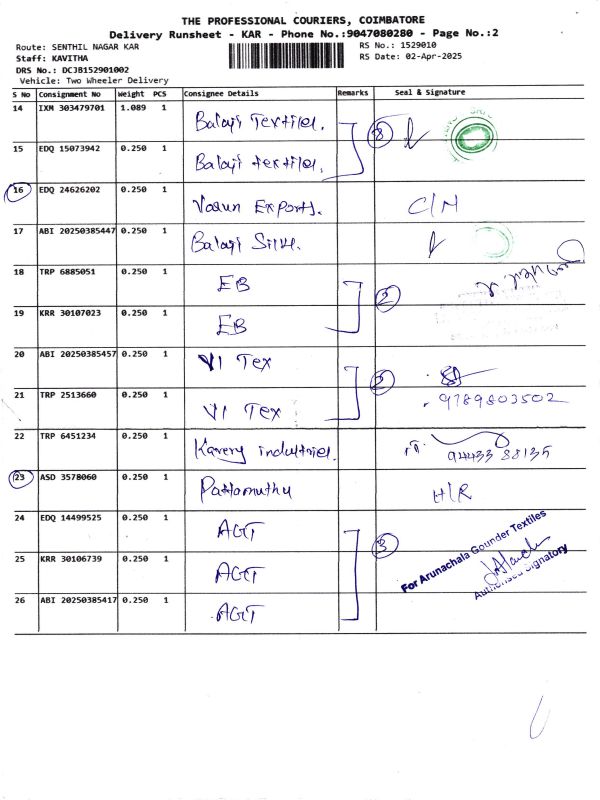 THE PROFESSIONAL COURIERS, COIMBATORE
Delivery Runsheet - KAR - Phone No.:9047080280 - Page No.:2
Route: SENTHIL NAGAR KAR
RS No.: 1529010
Staff: KAVITHA
RS Date: 02-Apr-2025
DRS No.: DCJB152901002
Vehicle: Two Wheeler Delivery
S No Consignment No Weight PCS Consignee Details Remarks Seal & Signature
14 IXM 303479701 1.089 1 Balaji Textiles.
15 EDQ 15073942 0.250 1 Balaji textiles.
16 EDQ 24626202 0.250 1 Varun Exports. C/N
17 ABI 20250385447 0.250 1 Balaji Silk.
18 TRP 6885051 0.250 1 EB
2
19 KRR 30107023 0.250 1 EB
20 ABI 20250385457 0.250 1 VI Tex
21 TRP 2513660 0.250 1 VI Tex 9789803502
22 TRP 6451234 0.250 1 Kavery industries. 94433 88135
23 ASD 3578060 0.250 1 Pattamuthu H/R
24 EDQ 14499525 0.250 1 AGT
3
For Arunachala Gounder Textiles
25 KRR 30106739 0.250 1 AGT
Authorised Signatory
26 ABI 20250385417 0.250 1 AGT